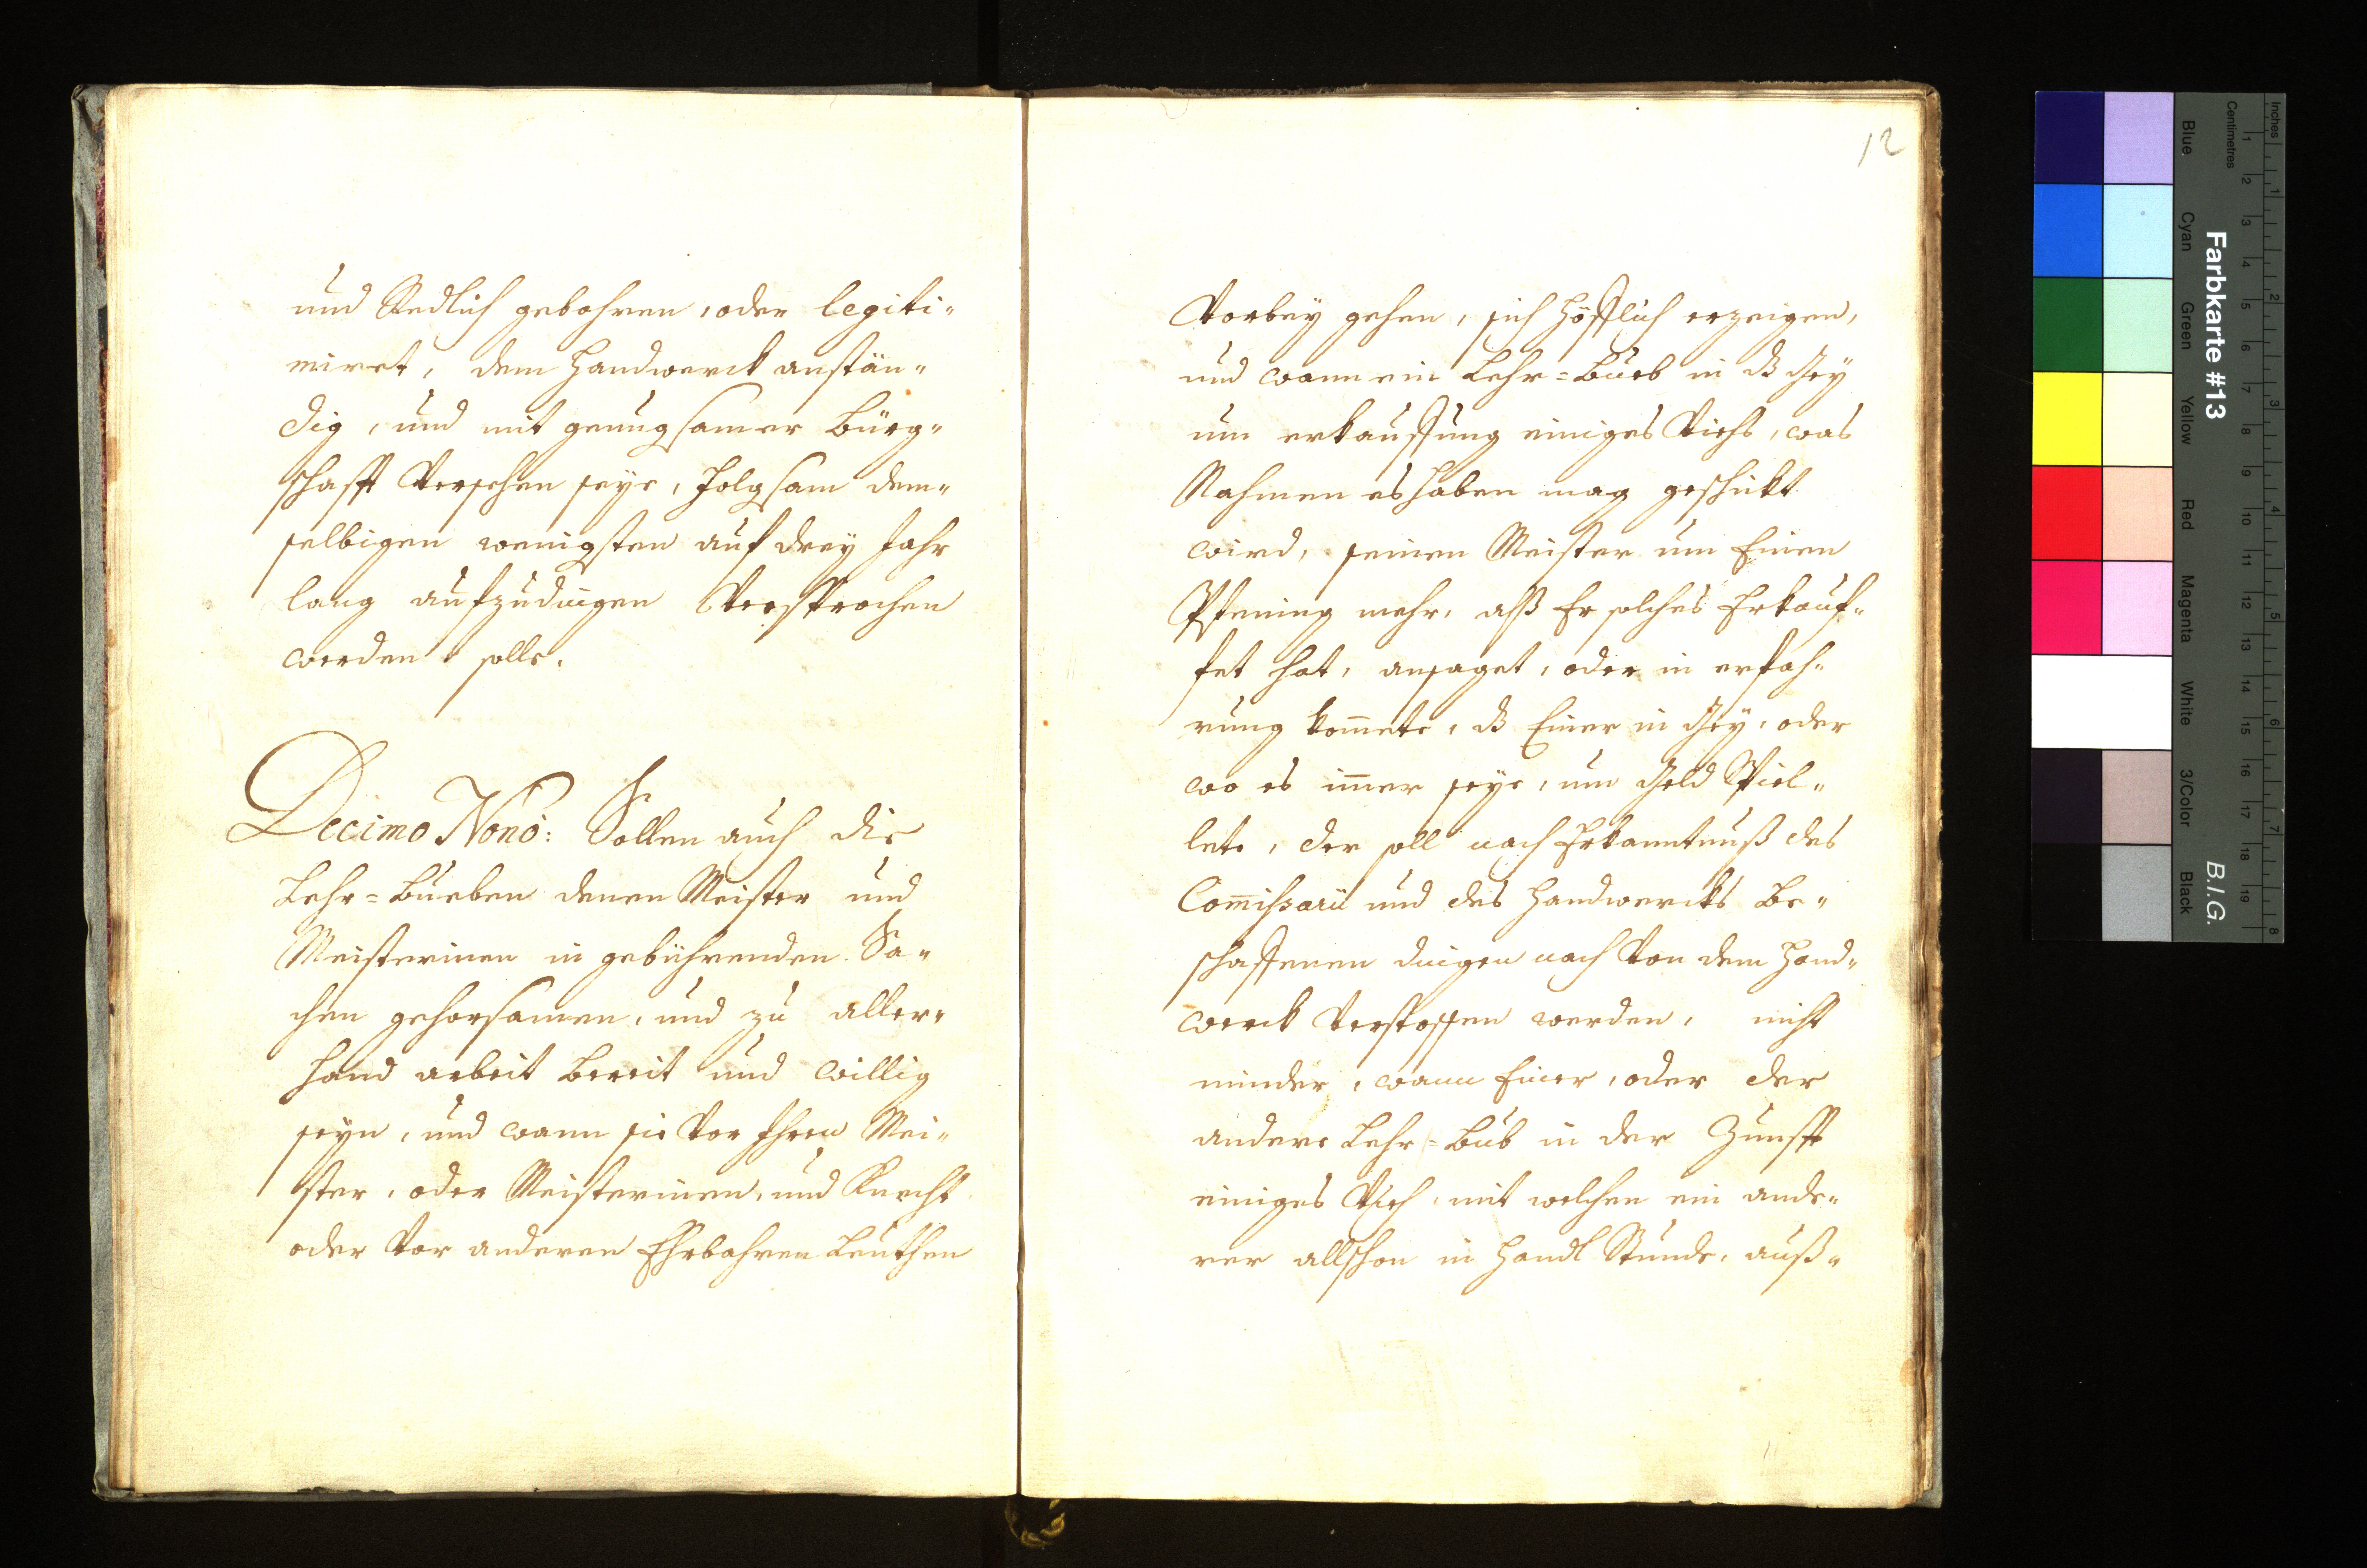 und Redlich gebohren, oder legiti-
miret, dem Handwerck anstän-
dig, und mit genugsamer Bürg-
schafft Versehen seye, folgsam dem-
selbigen wenigsten auf drey Jahr
lang aufzudingen Versprochen
werden solle.
Decimo Nonò: Sollen auch die
Lehr=Bueben denen Meister und
Meisterinen in gebührenden Sa-
chen gehorsamen, und zu aller-
hand arbeit bereit und willig
seyn, und wann sie Vor Ihren Mei-
ster, oder Meisterinen, und Knecht
oder Vor anderen Ehrbahren Leuthen
12
Vorbey gehen, sich höfflich erzeigen,
und wann ein Lehr=Bueb in dß Gey
um erkauffung einiges Viehs, was
Nahmen es haben mag geschickt
wird, seinen Meister um Einen
Pfening mehr, alß Er solches Erkauf-
fet hat, ansaget, oder in erfah-
rung kom̄ete, dß Einer in Gey, oder
wo es im̄er seye, um Geld Spiel-
lete, der soll nach Erkanntnuß des
Com̄issarii und des Handwercks Be-
schaffenen dingen nach Von dem Hand-
werck Verstossen werden, nicht
minder, wann Einer, oder der
andere Lehr=Bub in der Zunfft
einiges Vieh, mit welchen ein ande-
rer allschon in Handl Stunde, auß-
Farbkarte #13
B.I.G.
Inches
Centimetres
Blue
Cyan
Green
Yellow
Red
Magenta
White
3/Color
Black